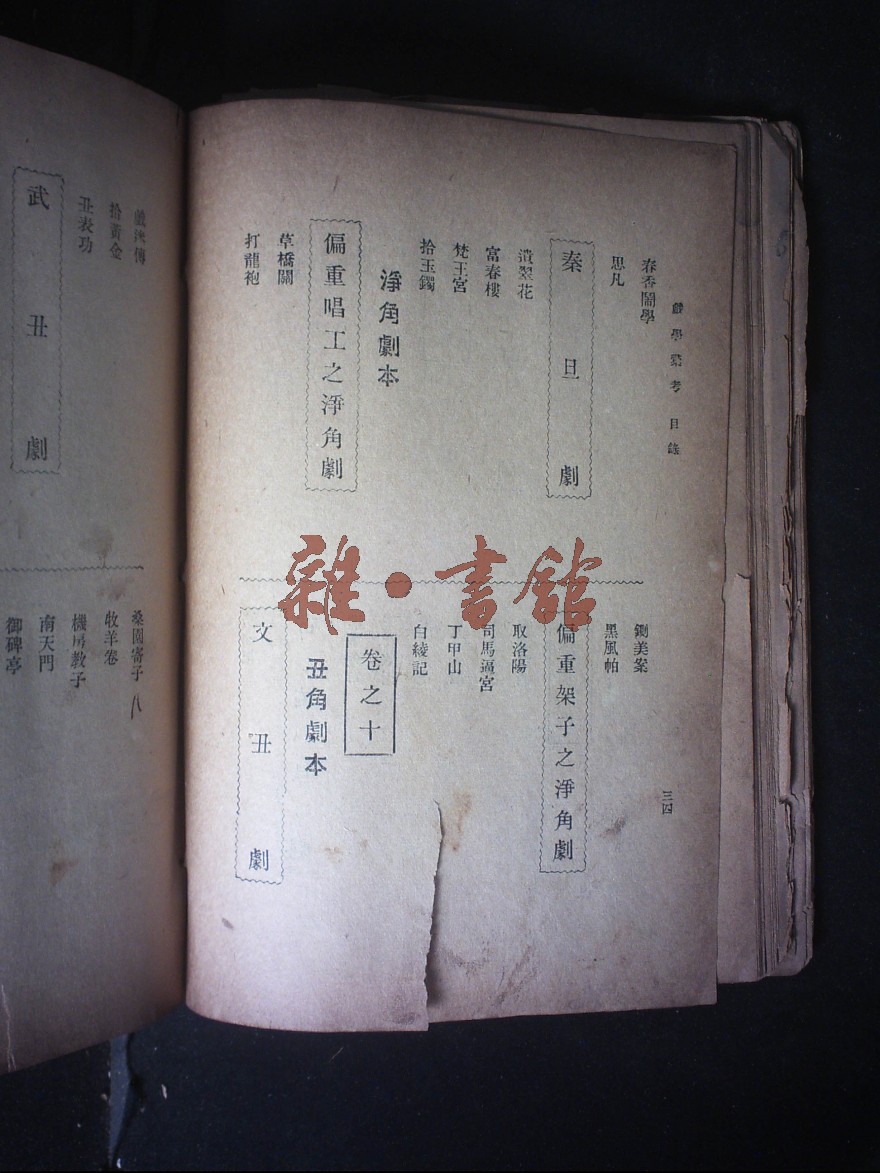 戲學彙考 目錄
三四
春香鬧學
思凡
秦旦劇
遺翠花
富春樓
梵王宮
拾玉鐲
淨角劇本
偏重唱工之淨角劇
草橋關
打龍袍
鍘美案
黑風帕
偏重架子之淨角劇
取洛陽
司馬逼宮
丁甲山
白綾記
卷之十
丑角劇本
文丑劇
戲迷傳
拾黃金
丑表功
武丑劇
桑園寄子
牧羊卷
機房教子
南天門
御碑亭
雜·書館